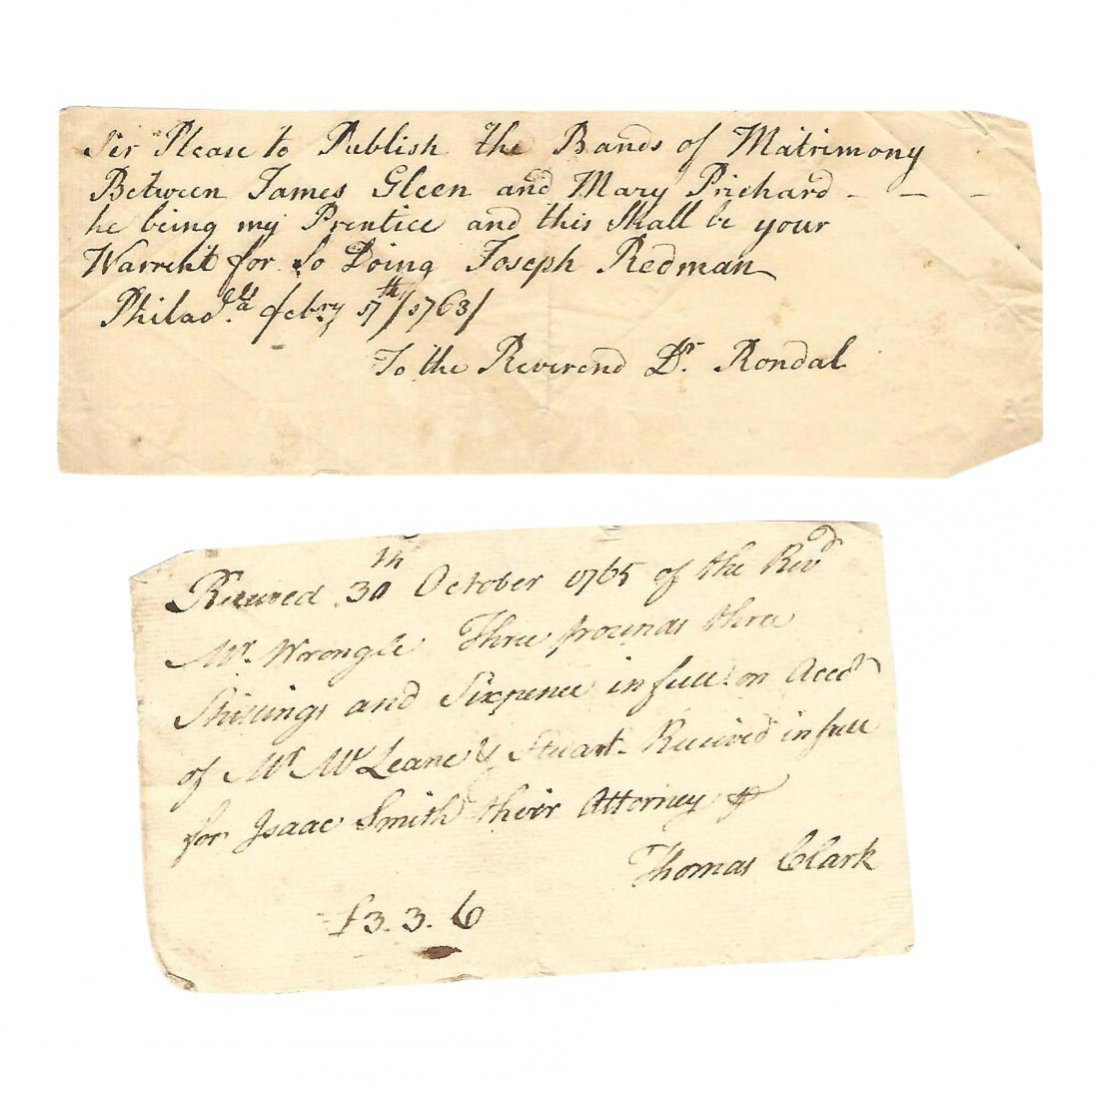 Sir Please to Publish the Bands of Matrimony
Between James Gleen and Mary Prichard - - -
he being my Prentice and this Shall be your
Warrent for So Doing Joseph Redman
Philad.ª febry 17th/1763/
To the Reverend Dr. Rondal
Received 30th October 1765 of the Revd
Mr. Wrangle Three pounds three
Shillings and Sixpence in full on Acct
of Mr McLeane & Stuart - Received in full
for Isaac Smith their Attorney
Thomas Clark
£3.3.6